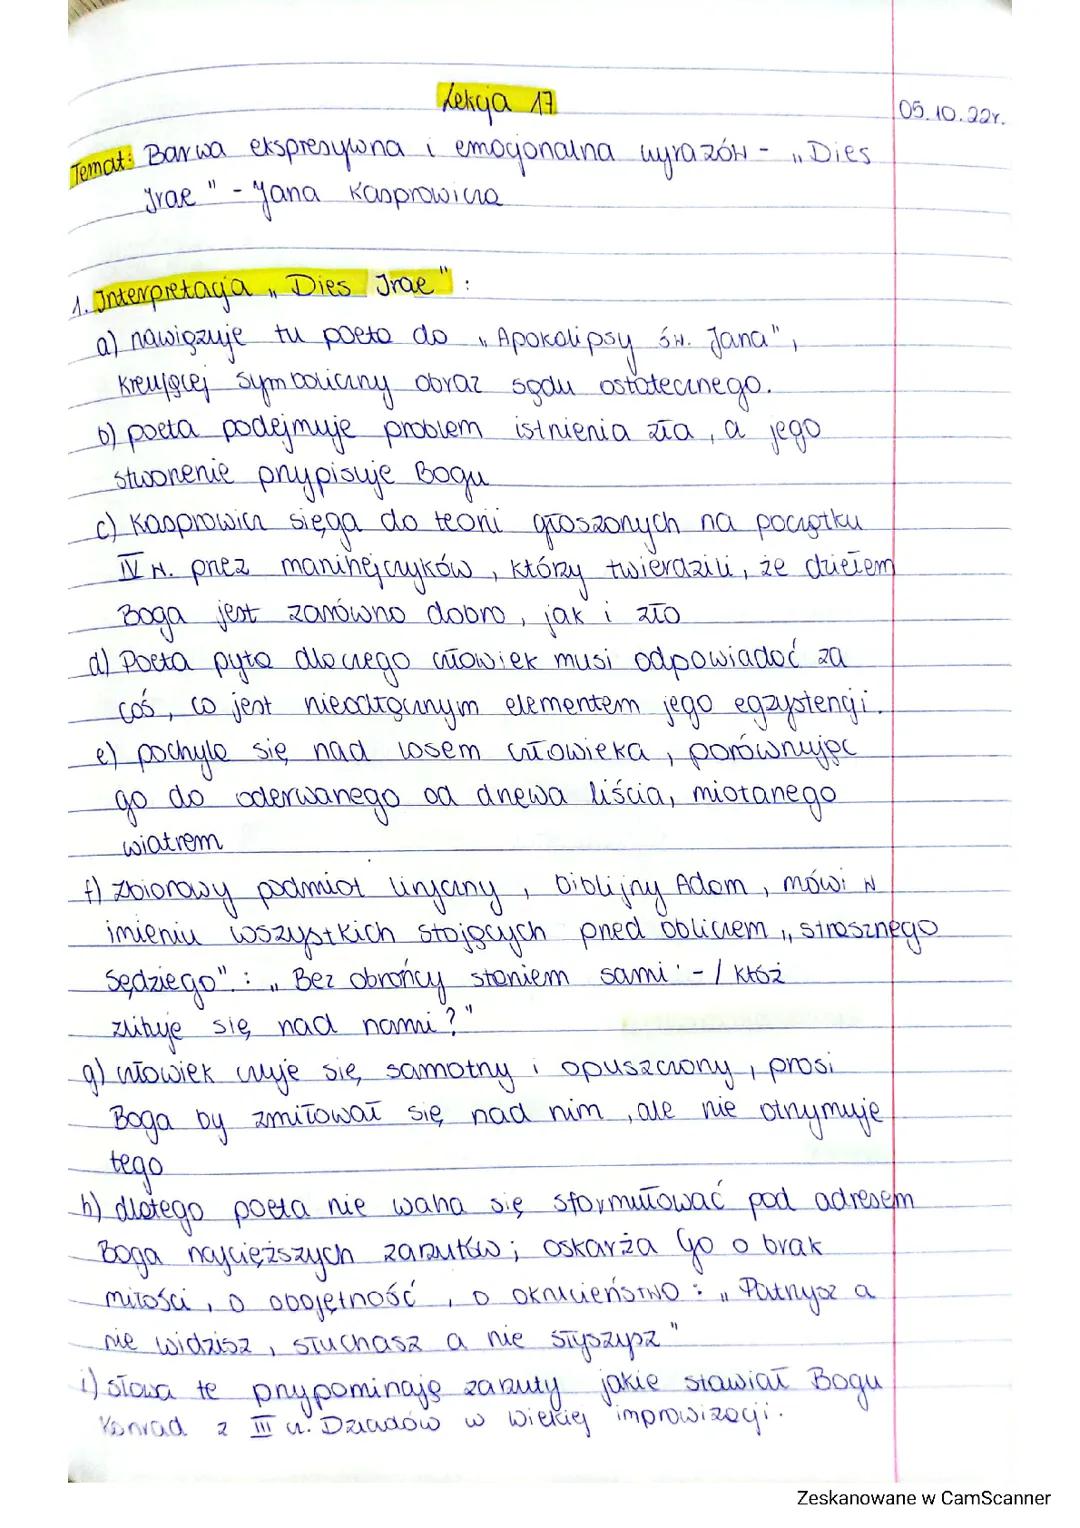 Lekcja 17
05.10.22r.
Temat: Barwa ekspresywna i emocjonalna wyrazów - „Dies
Irae" - Jana Kasprowicza
1. Interpretacja „Dies Irae":
a) nawiązuje tu poeta do „Apokalipsy św. Jana",
kreującej symboliczny obraz sądu ostatecznego.
b) poeta podejmuje problem istnienia zła, a jego
stworzenie przypisuje Bogu
c) Kasprowicz sięga do teorii głoszonych na początku
IV w. przez maninejczyków, którzy twierdzili, że dziełem
Boga jest zarówno dobro, jak i zło
d) Poeta pyta dlaczego człowiek musi odpowiadać za
coś, co jest nieodłącznym elementem jego egzystencji.
e) pochyla się nad losem człowieka, porównując
go do oderwanego od drzewa liścia, miotanego
wiatrem
f) zbiorowy podmiot liryczny, biblijny Adam, mówi w
imieniu wszystkich stojących przed obliczem „strasznego
Sędziego".: „Bez obrońcy staniem sami - / któż
zlituje się nad nami?"
g) człowiek czuje się samotny i opuszczony, prosi
Boga by zmiłował się nad nim, ale nie otrzymuje
tego
h) dlatego poeta nie waha się sformułować pod adresem
Boga najcięższych zarzutów; oskarża Go o brak
miłości, o obojętność, o okrucieństwo: „Patrzysz a
nie widzisz, słuchasz a nie słyszysz"
i) słowa te przypominają zarzuty jakie stawiał Bogu
Konrad z III cz. Dziadów w wielkiej improwizacji.
Zeskanowane w CamScanner